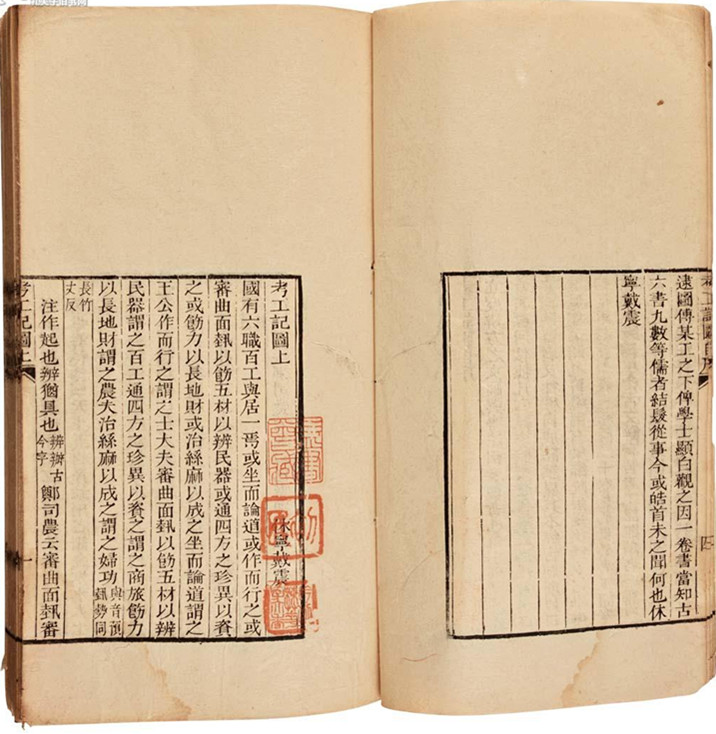 考工記圖自序
四
遠圖傳某工之下俾學士顯白觀之因一卷書當知古
六書九數等儒者結髮從事今或皓首未之聞何也休
寧戴震
考工記圖上
休寧戴震
國有六職百工與居一焉或坐而論道或作而行之或
審曲面埶以飭五材以辨民器或通四方之珍異以資
之或飭力以長地財或治絲麻以成之坐而論道謂之
王公作而行之謂之士大夫審曲面埶以飭五材以辨
民器謂之百工通四方之珍異以資之謂之商旅飭力
以長地財謂之農夫治絲麻以成之謂之婦功與音預埶勢同
長竹丈反
注作起也辨猶具也辨辦古今字鄭司農云審曲面埶審
考工記圖上
一